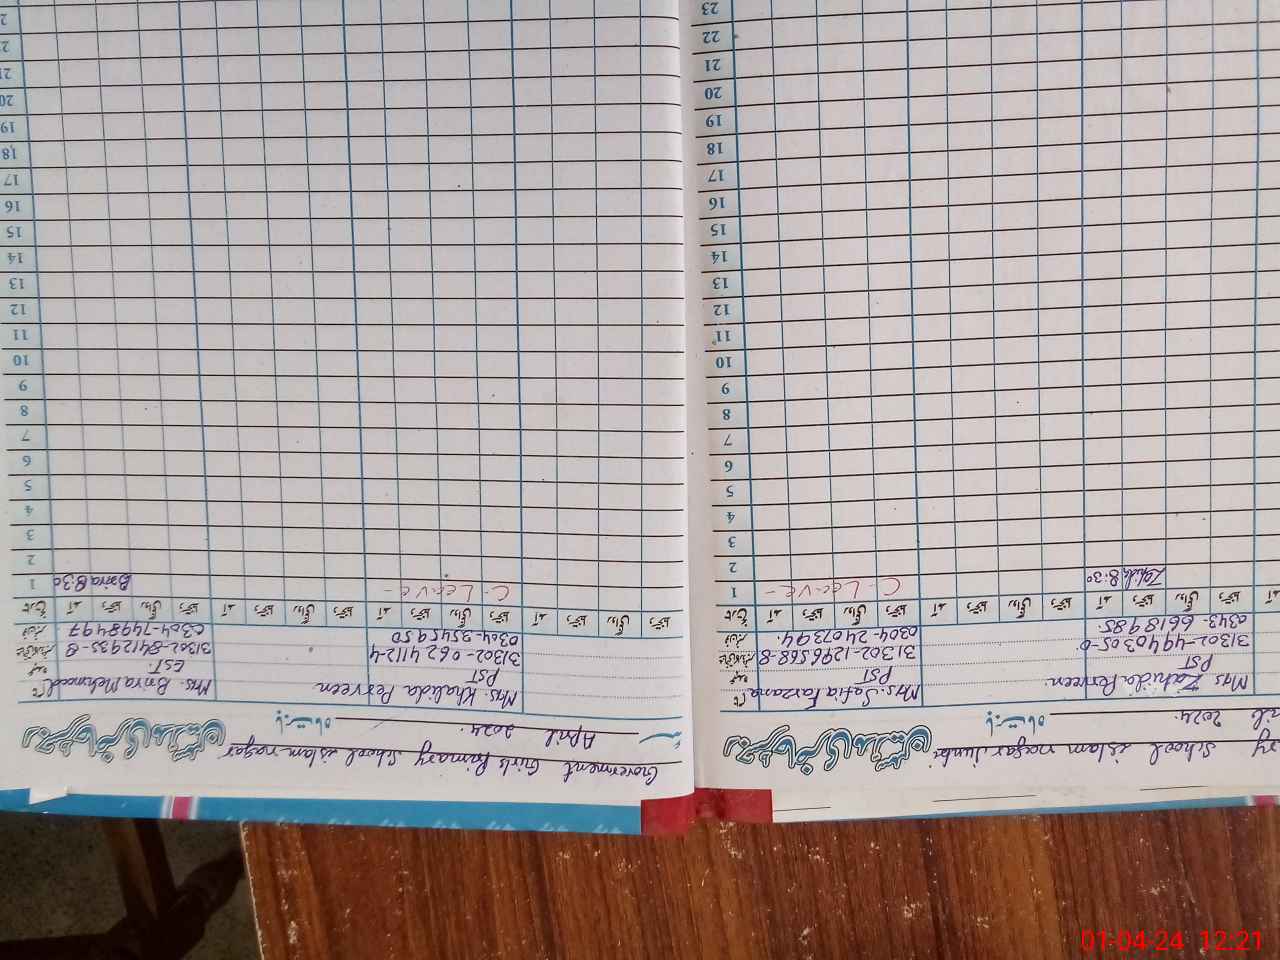 Government Girls Primary School islam nagar
April 2024.
رجسٹر حاضری مدرسین
بابت ماہ
Mrs. Khalida Perveen
PST
31302-0624112-4
0304-3545950
Mrs. Brira Mehmood
EST.
31302-8412935-8
0304-7498497
C-Leave-
Brira 8:30
1
2
3
4
5
6
7
8
9
10
11
12
13
14
15
16
17
18
19
20
21
School islam nagar Junbi
2024.
رجسٹر حاضری مدرسین
بابت ماہ
Mrs Zahida Perveen
PST
31302-4940305-0
0343-6618985.
Mrs. Safia Farzana
PST
31302-1296568-8
0304-2407394.
Zahida 8:30
C-Leave-
1
2
3
4
5
6
7
8
9
10
11
12
13
14
15
16
17
18
19
20
21
22
23
01-04-24 12:21